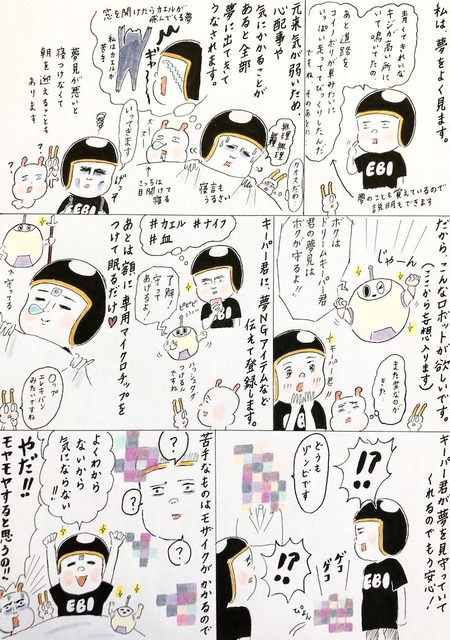 私は、夢をよく見ます。
青くてきれいな
キジが高い所に
いて鳴いてたの。
あと道路を
コイキングが車みたいに
いっぱい走っててびっくりしたんだ
ですね、そのあとは…
EBI
夢のことも覚えているので
説明もできます
元来気が弱いため
心配事や
気にかかることが
あると全部
夢に出てきて
うなされます。
窓を開けたらカエルが
飛んでくる夢
私はカエルが
苦手
ギャー
スー
スー
こっちは
目開けてる
寝
無理
無理
寝言も
うるさい
クオえだわ
夢見が悪いと
寝つけなくて
朝を迎えることも
あります
いってきます…
げっそ
EBI
?
?
だから、こんなロボットが欲しいです。
(ここから妄想入ります)
じゃーん
ボクは
ドリームキーパー君
君の夢見は
ボクが守るよ!
キーパー君!
また変なのが
きた…
キーパー君に、夢NGアイテムなど
伝えて登録します。
#ナイフ
#カエル
#血
EBI
ピピピ
了解
守って
あげるよ!
ハッシュタグ
つけるん
ですね
あとは額に専用マイクロチップを
つけて眠るだけ♥
守ってる
ロップ
エレキバン
みたいですね
キーパー君が夢を見守っていて
くれるのでもう安心!
!?
どうも
ゾンビです
!?
ゲコ
ゲコ
ぴょん
EBI
苦手なものはモザイクがかかるので
?
?
?
よくわから
ないから
気にならない
!!
EBI
やだ!!
モヤモヤすると思うの!!